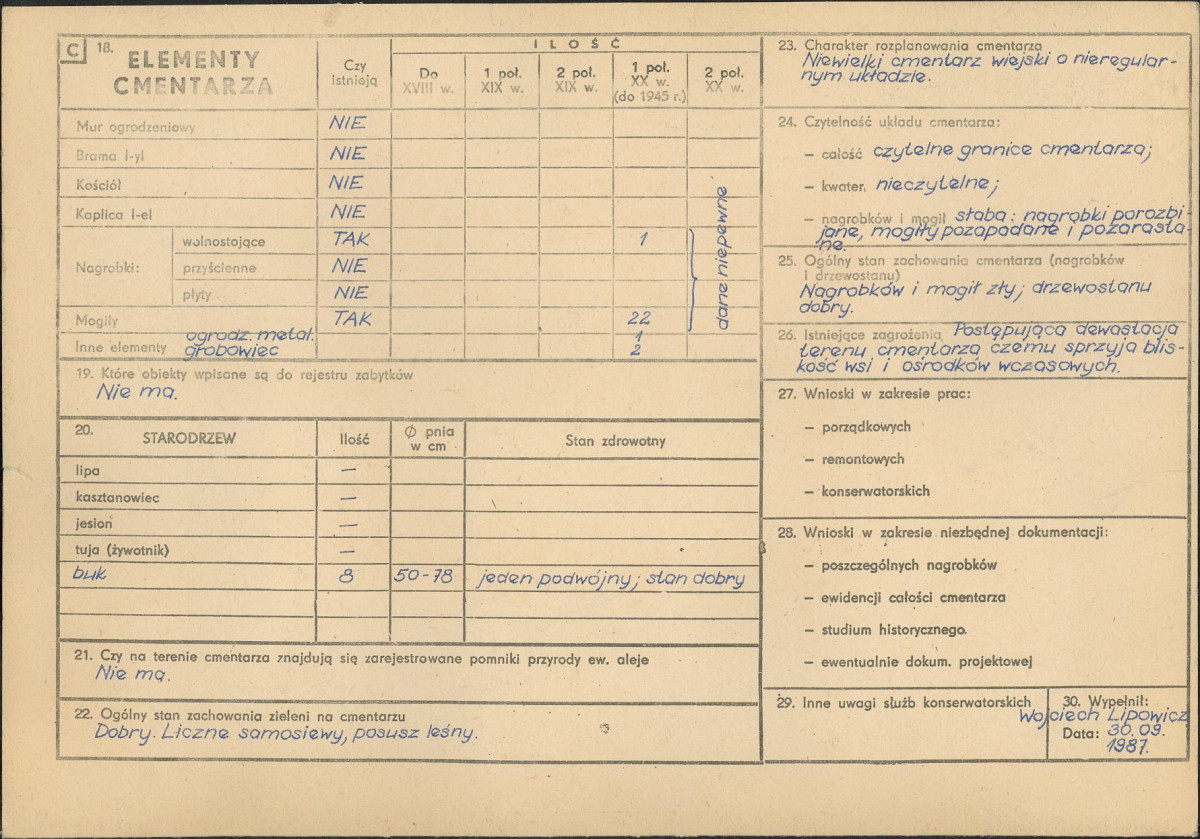 C 18. ELEMENTY CMENTARZA
Czy istnieją
ILOŚĆ
Do XVIII w.
1 poł. XIX w.
2 poł. XIX w.
1 poł. XX w. (do 1945 r.)
2 poł. XX w.
Mur ogrodzeniowy NIE
Brama I-yl NIE
Kościół NIE
Kaplica I-el NIE
Nagrobki:
wolnostojące TAK 1
przyścienne NIE
płyty NIE
Mogiły TAK 22
dane niepewne
Inne elementy ogrodz. metal. 1
grobowiec 2
19. Które obiekty wpisane są do rejestru zabytków
Nie ma.
20. STARODRZEW Ilość Ø pnia w cm Stan zdrowotny
lipa —
kasztanowiec —
jesion —
tuja (żywotnik) —
buk 8 50-78 jeden podwójny; stan dobry
21. Czy na terenie cmentarza znajdują się zarejestrowane pomniki przyrody ew. aleje
Nie ma.
22. Ogólny stan zachowania zieleni na cmentarzu
Dobry. Liczne samosiewy, posusz leśny.
23. Charakter rozplanowania cmentarza
Niewielki cmentarz wiejski o nieregular-
nym układzie.
24. Czytelność układu cmentarza:
— całość czytelne granice cmentarza;
— kwater, nieczytelne;
— nagrobków i mogił słaba: nagrobki porozbi-
jane, mogiły pozapadane i pozarasta-
ne.
25. Ogólny stan zachowania cmentarza (nagrobków
i drzewostanu)
Nagrobków i mogił zły; drzewostanu
dobry.
26. Istniejące zagrożenia Postępująca dewastacja
terenu cmentarza czemu sprzyja blis-
kość wsi i ośrodków wczasowych.
27. Wnioski w zakresie prac:
— porządkowych
— remontowych
— konserwatorskich
28. Wnioski w zakresie niezbędnej dokumentacji:
— poszczególnych nagrobków
— ewidencji całości cmentarza
— studium historycznego.
— ewentualnie dokum. projektowej
29. Inne uwagi służb konserwatorskich
30. Wypełnił:
Wojciech Lipowicz
Data: 30.09.
1987.